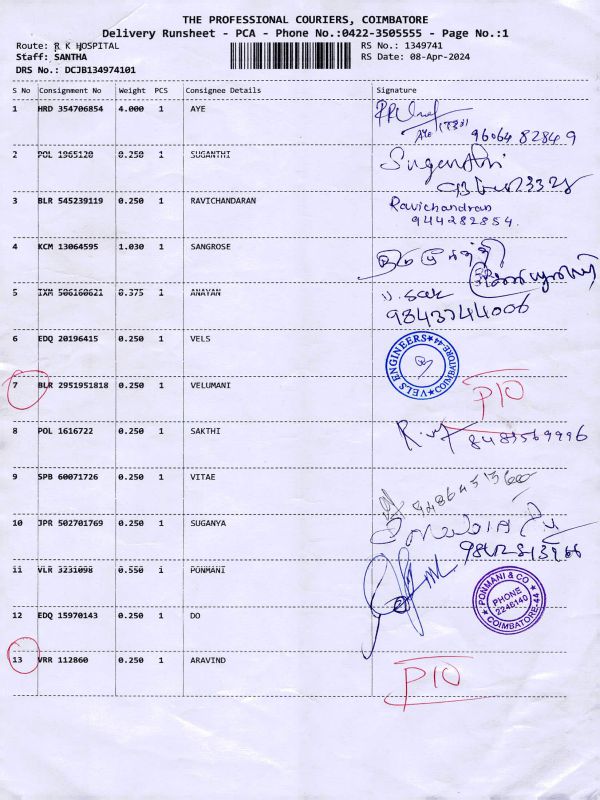 THE PROFESSIONAL COURIERS, COIMBATORE
Delivery Runsheet - PCA - Phone No.:0422-3505555 - Page No.:1
Route: R K HOSPITAL
RS No.: 1349741
Staff: SANTHA
RS Date: 08-Apr-2024
DRS No.: DCJB134974101
S No Consignment No Weight PCS Consignee Details Signature
1 HRD 354706854 4.000 1 AYE
96064 8284 9
2 POL 1965120 0.250 1 SUGANTHI Suganthi
3 BLR 545239119 0.250 1 RAVICHANDARAN Ravichandran
944282854.
4 KCM 13064595 1.030 1 SANGROSE
5 IXM 506160621 0.375 1 ANAYAN
9843744006
6 EDQ 20196415 0.250 1 VELS VELS ENGINEERS COIMBATORE-44
7 BLR 2951951818 0.250 1 VELUMANI P10
8 POL 1616722 0.250 1 SAKTHI 8489569996
9 SPB 60071726 0.250 1 VITAE
10 JPR 502701769 0.250 1 SUGANYA
11 VLR 3231098 0.550 1 PONMANI PONMANI & CO PHONE 2246140 COIMBATORE-44
12 EDQ 15970143 0.250 1 DO
13 VRR 112860 0.250 1 ARAVIND P10